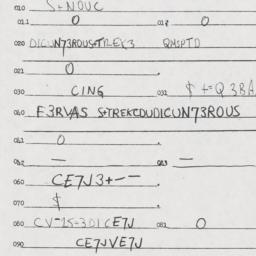 010 S+NOUC
011 0 012 0
020 DICUN73ROUS+TREK3 QMSPTD
021 0
030 CING 032 $ += Q3BA
040 F3RVAS S+TREKCDUDICUN73ROUS
061 0
062 — 063 —
060 CE7J3+——
070 $
080 CV-15-3D1CE7J 081 0
090 CE7JVE7J